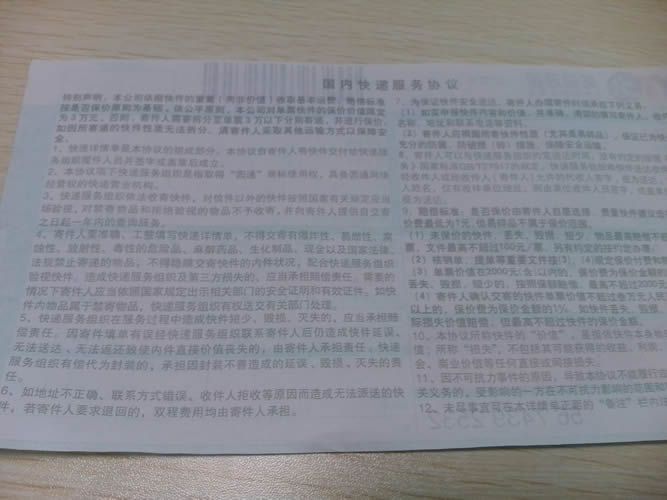 国内快递服务协议
特别声明：本公司依据快件的重量（而非价值）收取基本运费，赔偿标准
按是否保价原则为基础。依公平原则，本公司对单票快件的保价价值限定
为3万元，否则，寄件人需要拆分至单票3万以下分别寄递，并进行保价；
如因所寄递的快件性质无法拆分，请寄件人采取其他运输方式以保障安
全。
1、快递详情单是本协议的组成部分。本协议自寄件人将快件交付给快递服
务组织履行人员并签字或盖章后成立。
2、本协议项下快递服务组织是指取得
商标使用权，具备因通网络
经营权的快递营业机构。
3、快递服务组织依法收寄快件，对信件以外的快件按照国家有关规定应当
场验视，对禁寄物品和拒绝验视的物品不予收寄，并向寄件人提供自交寄
之日起一年内的查询服务。
4、寄件人要准确、工整填写快递详情单，不得交寄有爆炸性、易燃性、腐
蚀性、放射性、毒性的危险品、麻醉药品、生化制品、现金以及国家法律
法规禁止寄递的物品，不得隐瞒交寄快件的内件状况，配合快递服务组织
验视快件。造成快递服务组织及第三方损失的，应当承担赔偿责任。需要的
情况下寄件人应当依照国家规定出示相关部门的安全证明和有效证件。如快
件内物品属于禁寄物品，快递服务组织有权送交有关部门处理。
5、快递服务组织在服务过程中造成快件短少、毁损、灭失的，应当承担赔
偿责任。因寄件填单有误经快递服务组织联系寄件人后仍造成快件延误、
无法送达、无法返还致使内件直接价值丧失的，由寄件人承担责任，快递
服务组织有偿代为封装的，承担因封装不善造成的延误、毁损、灭失的责
任。
6、如地址不正确、联系方式错误、收件人拒收等原因而造成无法派送的快
件，若寄件人要求退回的，双程费用均由寄件人承担。
7、为保证快件安全送达，寄件人办理寄件时须承担下列义务：
（1）如实申报快件内容和价值，并准确、清楚的填写寄件人、收件
地址和联系电话等资料。
（2）寄件人应根据所寄快件性质（尤其是易碎品），保证已为快
充分的防震、防破损（碎）措施，保障安全运输。
9、赔偿标准：是否保价由寄件人自愿选择，贵重快件建议
价费最低为1元，但易碎品不属于保价范围。
（1）未保价的快件，丢失、毁损、短少，物品最高赔偿不超
票，文件最高不超过100元/票，另有约定的按约定办事。
（2）核销单、提单等重要文件按（3）、（4）规定保价付费
（3）单票价值在2000元（含）以内的，保价费为保价金额的
丢失、毁损、短少的，按照保额赔偿，最高不超过2000元
（4）寄件人确认交寄的快件单票价值不超过叁万元人民
以上的，保价费为保价金额的1%。如快件丢失、毁损、
际损失价值赔偿，但最高不超过快件的保价金额。
10、本协议所称快件的“价值”，是指快件本身
值；所称“损失”，不包括其可能获得的收益、利润、
会、商业价值等任何直接或间接损失。
11、因不可抗力事件的原因，导致本协议不能履行
关义务的，受影响的一方在不可抗力影响的范围
12、未尽事宜可在本详情单正面的“备注”栏内